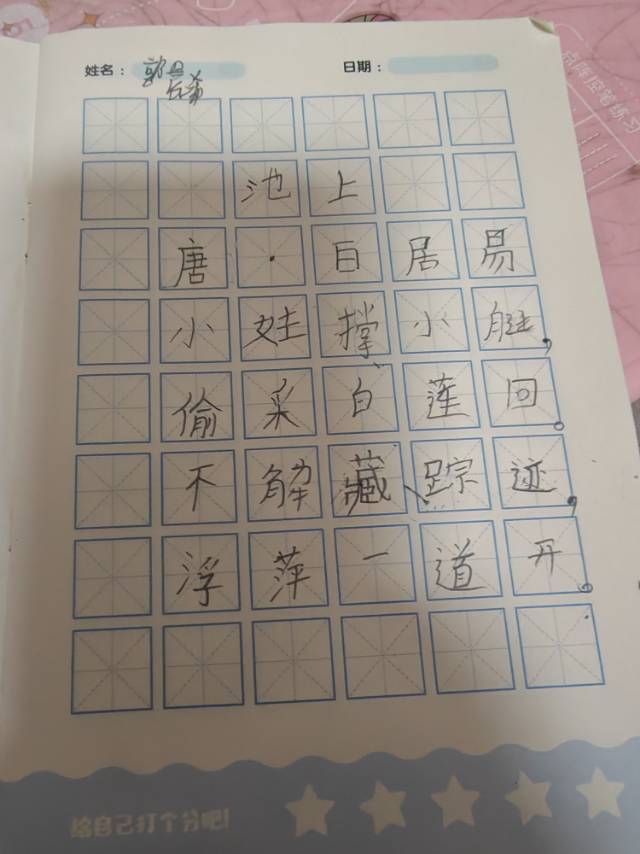 姓名： 郭 日期：
池上
唐·白居易
小娃撑小艇，
偷采白莲回。
不解藏踪迹，
浮萍一道开。
给自己打个分吧！
点阵控笔练习